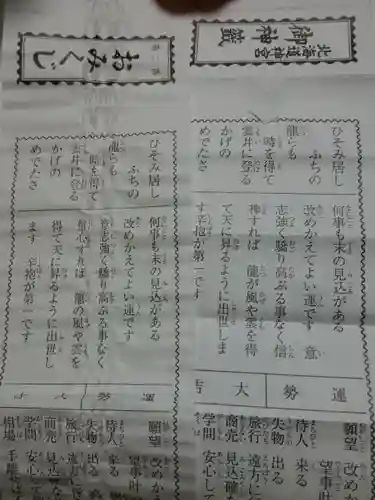 北海道神宮
御神籤
ひそみ居し
ふちの
龍らも
時を得て
雲井に登る
かげの
めでたさ
何事も末の見込がある
改めかえてよい運です 意
志強く驕り高ぶる事なく信
神すれば 龍が風や雲を得
て天に昇るように出世しま
す 辛抱が第一です
運勢 大吉
願望 改めか
望事叶
待人 来る
失物 出る
旅行 遠方に
商売 見込確
学問 安心して
おみくじ
ひそみ居し
ふちの
龍らも
時を得て
雲井に登る
かげの
めでたさ
何事も末の見込がある
改めかえてよい運です
意志強く驕り高ぶる事なく
信心すれば 龍の風や雲を
得て天に昇るように出世し
ます 辛抱が第一です
運勢 大
願望 改めか
望事叶
待人 来る
失物 出る
旅行
商売 見込
学問 安心し
相場